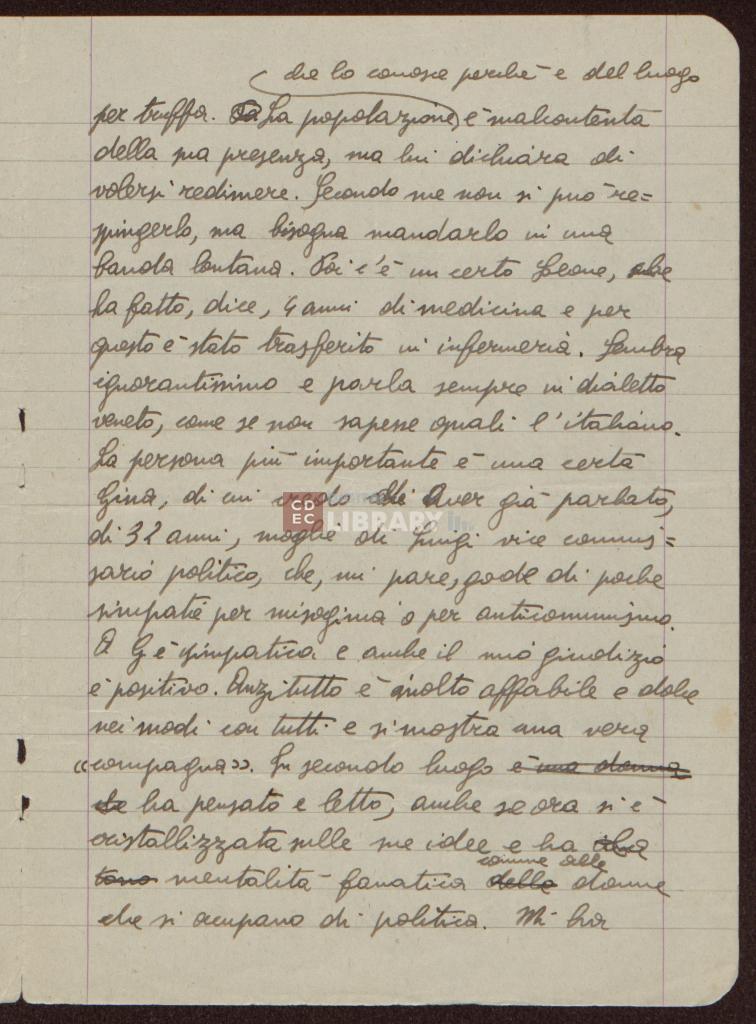 che lo conosce perché è del luogo
per truffa. La popolazione, è malcontenta
della sua presenza, ma lui dichiara di
volersi redimere. Secondo me non si può re=
spingerlo, ma bisogna mandarlo in una
banda lontana. Poi c'è un certo Leone, che
ha fatto, dice, 4 anni di medicina e per
questo è stato trasferito in infermeria. Sembra
ignorantissimo e parla sempre in dialetto
veneto, come se non sapesse quasi l'italiano.
La persona più importante è una certa
Gina, di cui credo di aver già parlato,
CDEC LIBRARY
di 32 anni, moglie di Luigi vice commis=
sario politico, che, mi pare, gode di poche
simpatie per misoginia o per anticomunismo.
A G è simpatica e anche il mio giudizio
è positivo. Anzitutto è molto affabile e dolce
nei modi con tutti e si mostra una vera
«compagna». In secondo luogo è una donna
che ha pensato e letto, anche se ora si è
cristallizzata sulle sue idee e ha
mentalità fanatica della donne
comune alle
che si occupano di politica. Mi ha